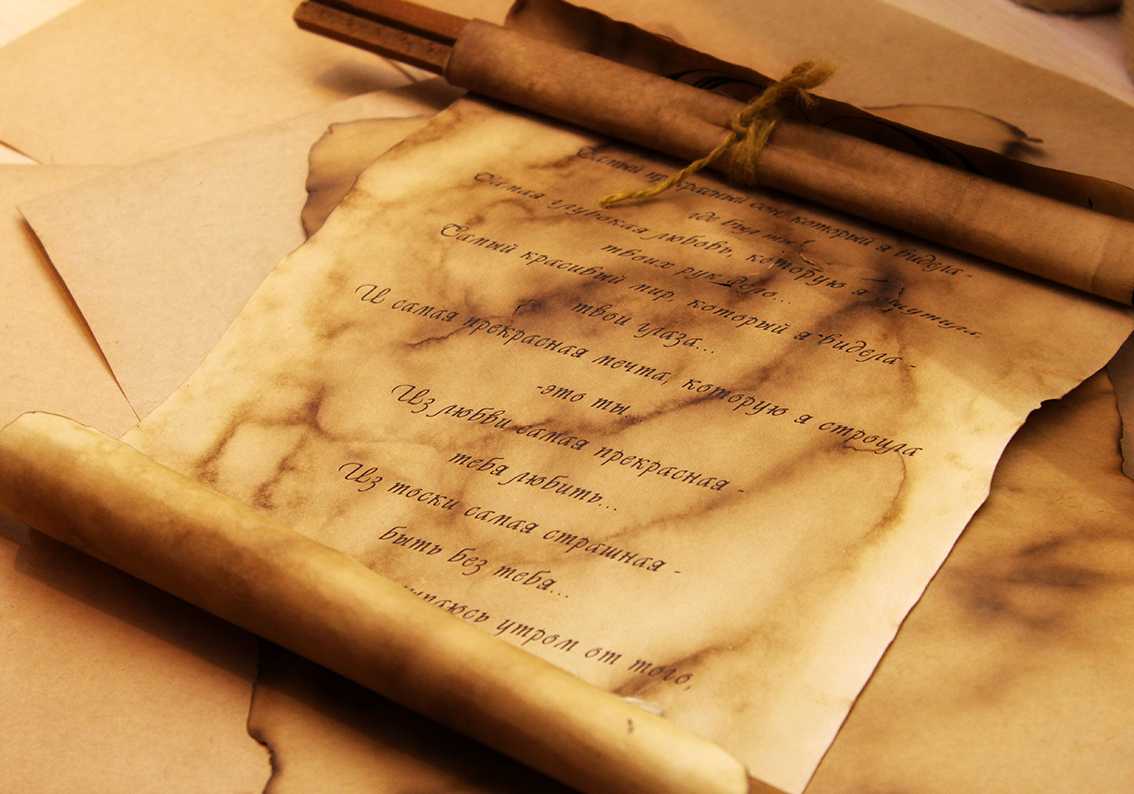 Самый прекрасный сон, который я видела -
где был
Самая глубокая любовь, которую я
твоих рук
Самый красивый мир, который я видела -
твои глаза...
И самая прекрасная мечта, которую я строила
-это ты.
Из любви самая прекрасная -
тебя любить...
Из тоски самая страшная -
быть без тебя...
утром от того,